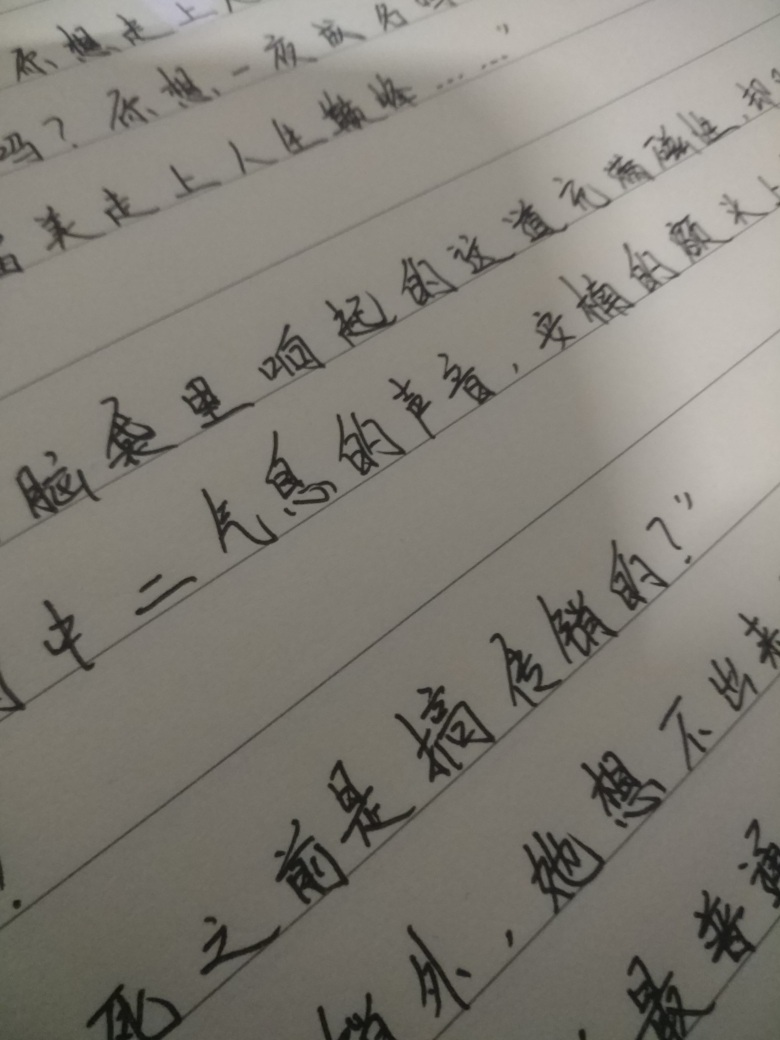 你想走上人
吗？你想一夜成名吗
富美走上人生巅峰……”
脑袋里响起的这道充满磁性，
中二气息的声音，安楠的额头上
死之前是搞传销的？”
销外，她想不出来
最普通